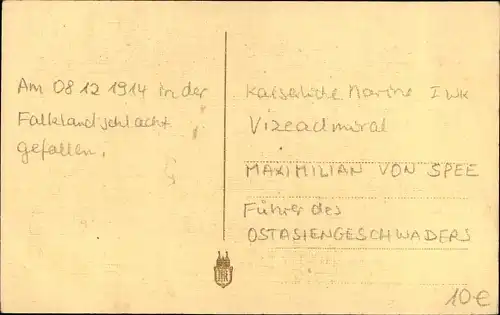 Am 08 12 1914 in der
Falklandschlacht
gefallen.
Kaiserliche Marine I WK
Vizeadmiral
MAXIMILIAN VON SPEE
Führer des
OSTASIENGESCHWADERS
10€